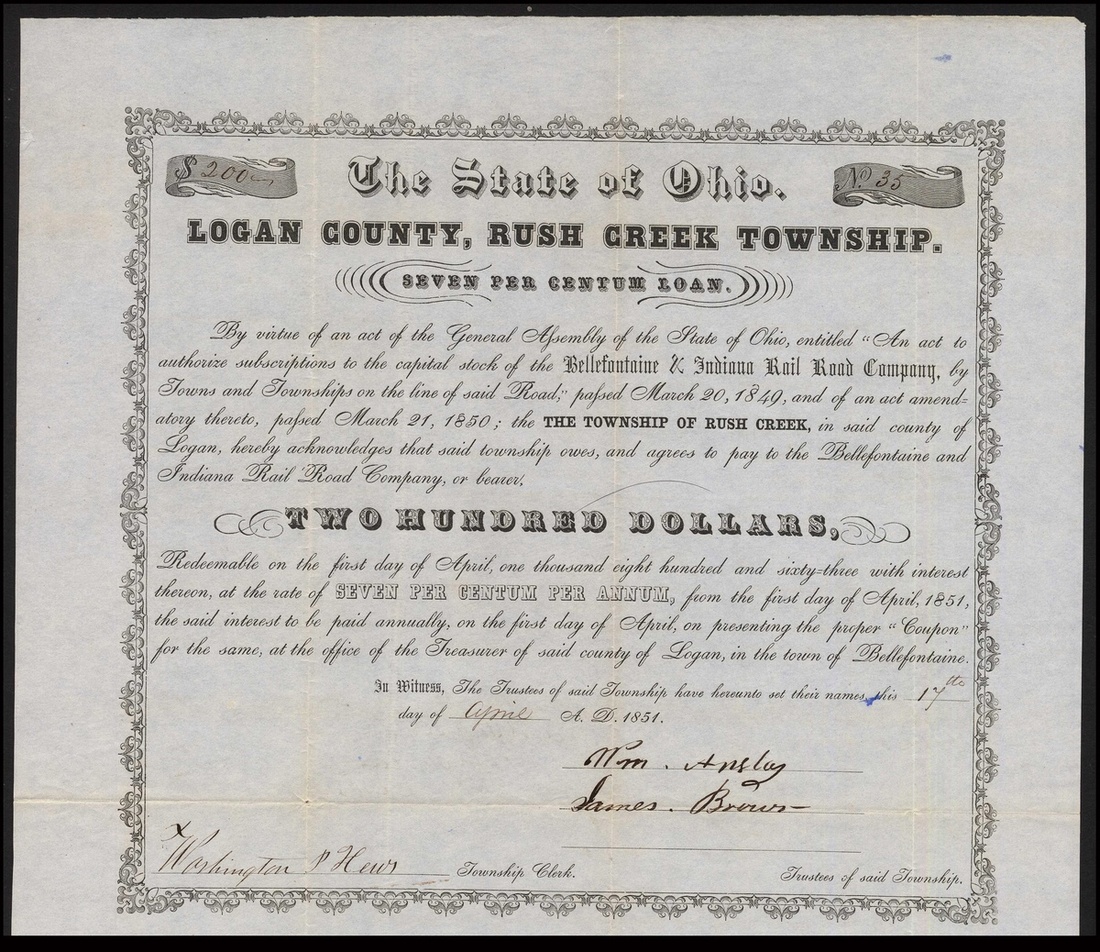 $ 200
The State of Ohio.
No. 35
LOGAN COUNTY, RUSH CREEK TOWNSHIP.
SEVEN PER CENTUM LOAN.
By virtue of an act of the General Assembly of the State of Ohio, entitled "An act to
authorize subscriptions to the capital stock of the Bellefontaine & Indiana Rail Road Company, by
Towns and Townships on the line of said Road," passed March 20, 1849, and of an act amend-
atory thereto, passed March 21, 1850; the THE TOWNSHIP OF RUSH CREEK, in said county of
Logan, hereby acknowledges that said township owes, and agrees to pay to the Bellefontaine and
Indiana Rail Road Company, or bearer,
TWO HUNDRED DOLLARS,
Redeemable on the first day of April, one thousand eight hundred and sixty-three with interest
thereon, at the rate of SEVEN PER CENTUM PER ANNUM, from the first day of April, 1851,
the said interest to be paid annually, on the first day of April, on presenting the proper "Coupon"
for the same, at the office of the Treasurer of said county of Logan, in the town of Bellefontaine.
In Witness, The Trustees of said Township have hereunto set their names, this 17th
day of April A. D. 1851.
Wm. Ansley
James. Brown
Washington P Hews Township Clerk.
Trustees of said Township.